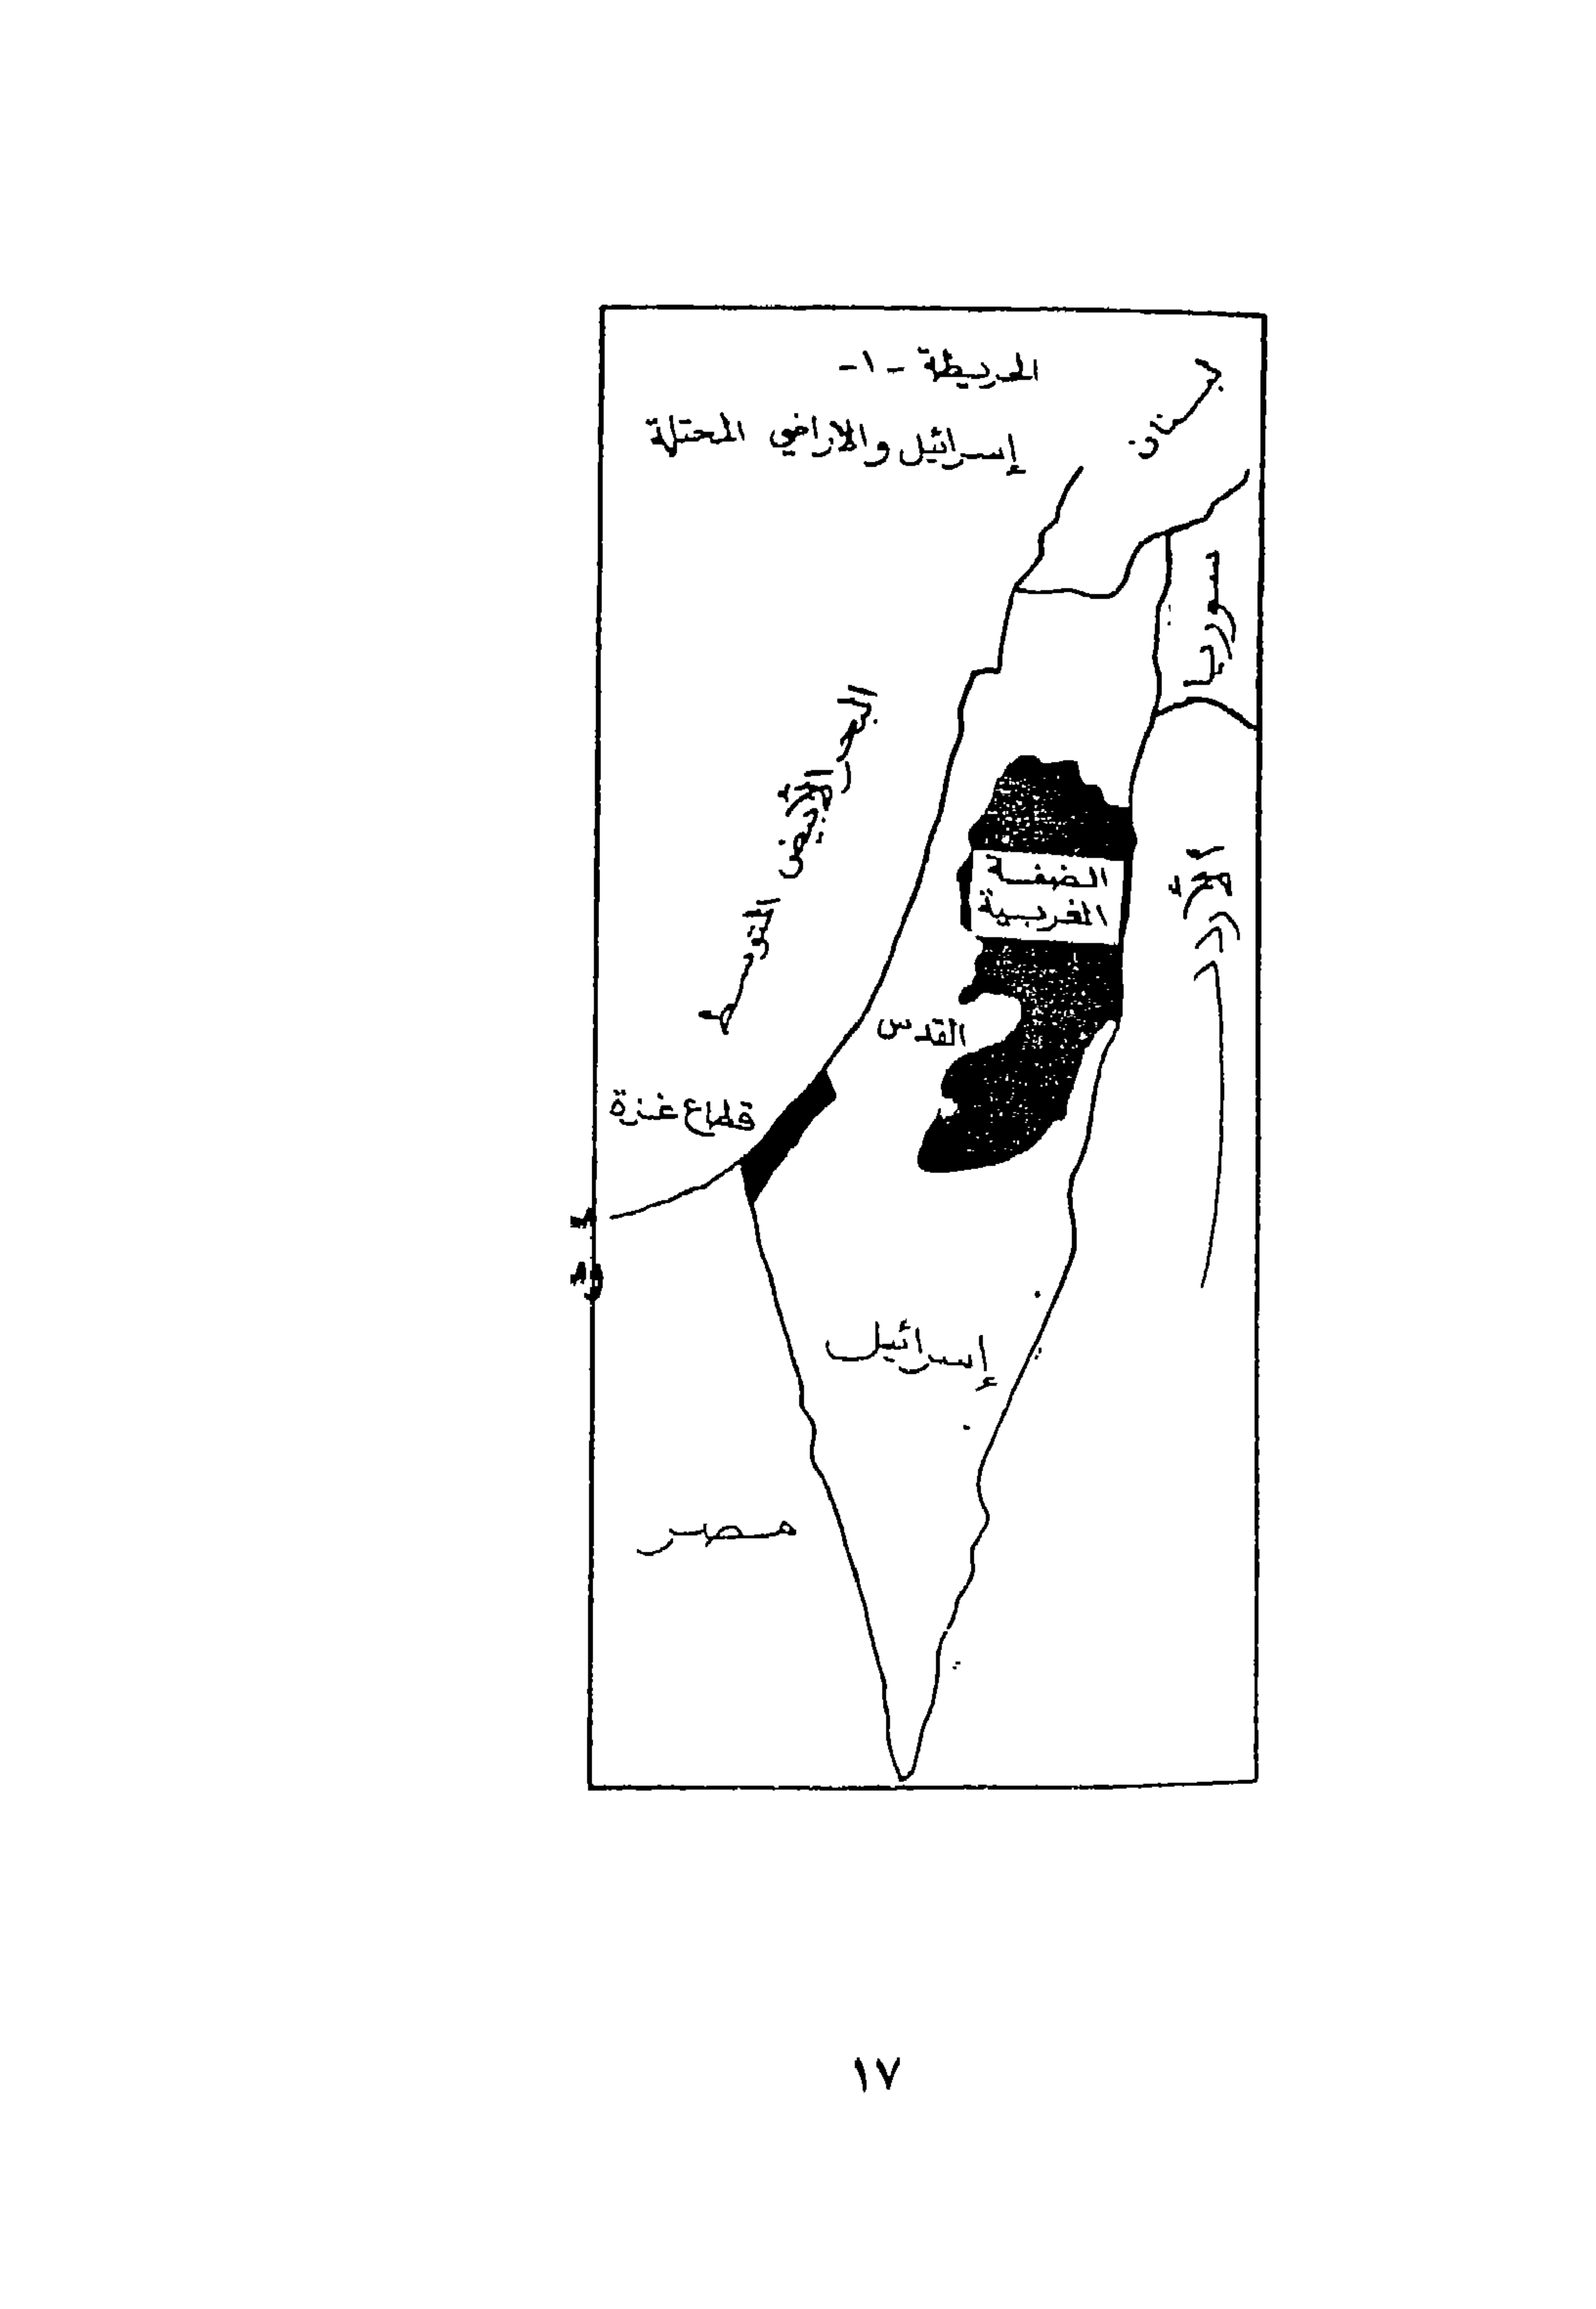 الخريطة -١-
إسرائيل والاراضي المحتلة
لبنان
سوريا
البحر الأبيض المتوسط
الضفة
الغربية
الأردن
القدس
قطاع غزة
إسرائيل
مصر
١٧